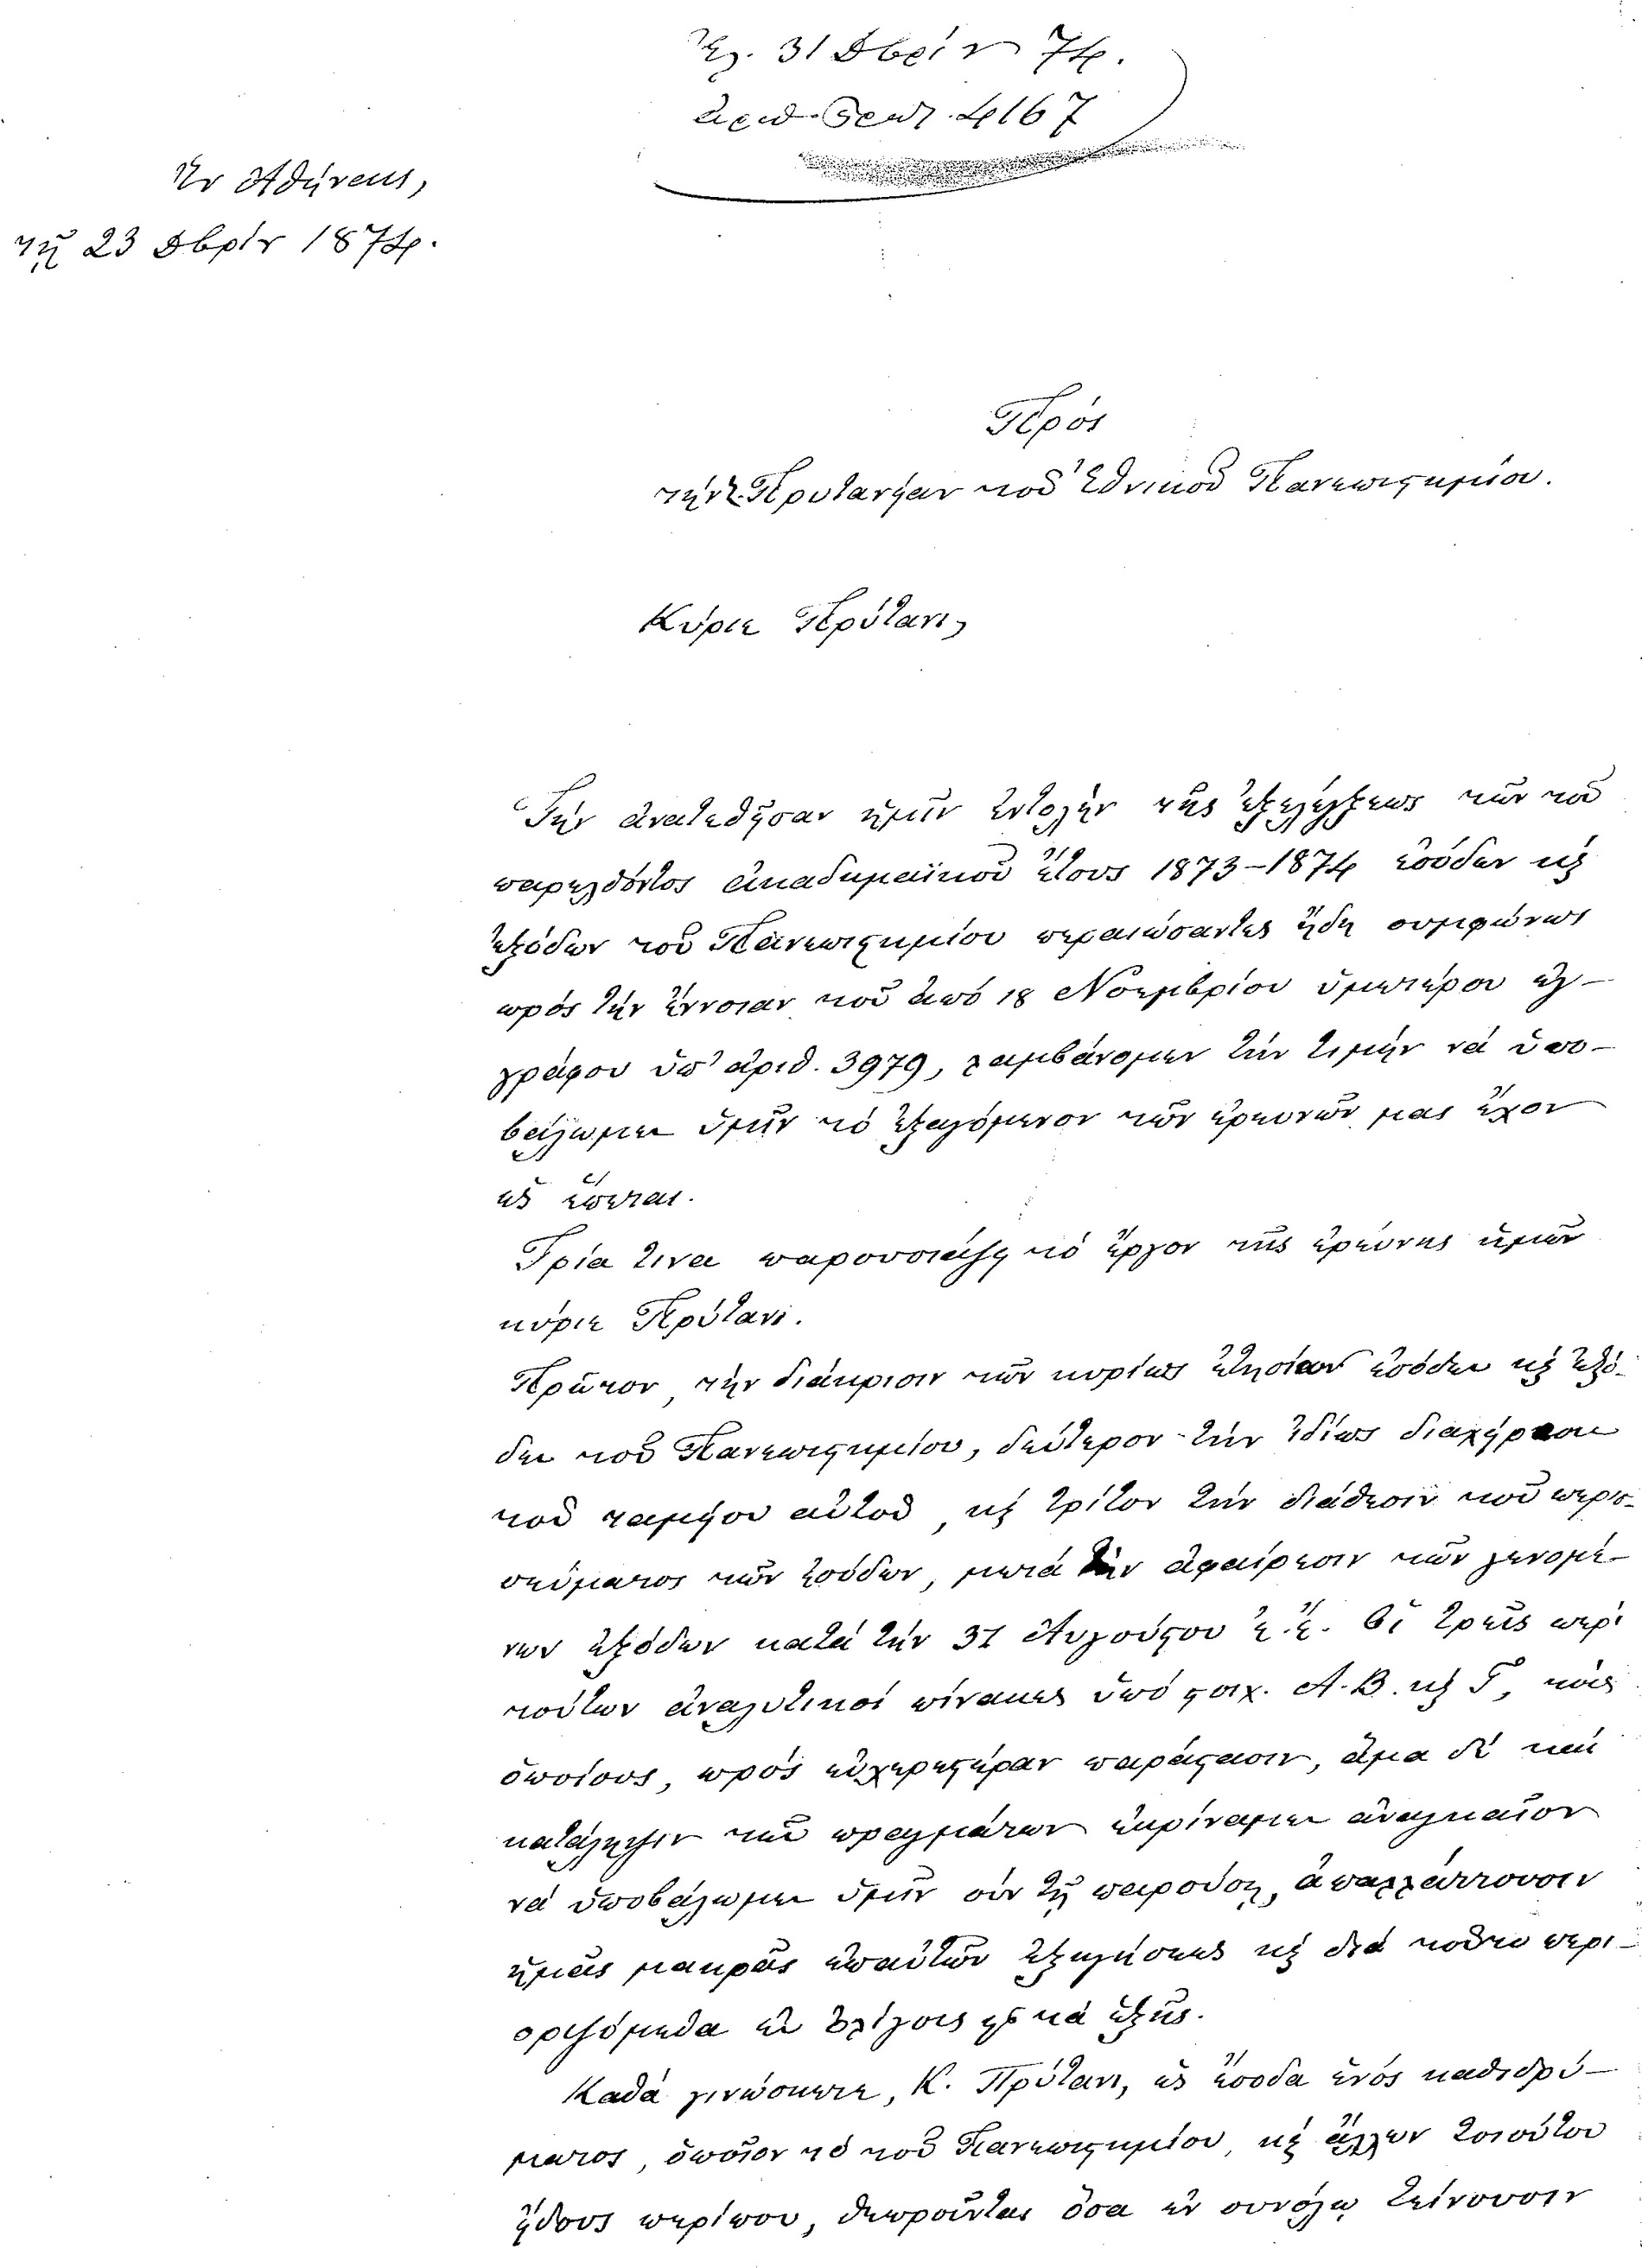 Ἐλ. 31 Δβρίου 74.
ἀριθ. Πρωτ. 4167
Ἐν Ἀθήναις,
τῇ 23 Δβρίου 1874.
Πρὸς
τὴν Πρυτανείαν τοῦ Ἐθνικοῦ Πανεπιστημίου.
Κύριε Πρύτανι,
Τὴν ἀνατεθεῖσαν ἡμῖν ἐντολὴν τῆς ἐξελέγξεως τῶν τοῦ
παρελθόντος ἀκαδημαϊκοῦ ἔτους 1873-1874 ἐσόδων καὶ
ἐξόδων τοῦ Πανεπιστημίου περαιώσαντες ἤδη συμφώνως
πρὸς τὴν ἔννοιαν τοῦ ἀπὸ 18 Νοεμβρίου ὑμετέρου ἐγ-
γράφου ὑπ' ἀριθ. 3979, λαμβάνομεν τὴν τιμὴν νὰ ὑπο-
βάλωμεν ὑμῖν τὸ ἐξαγόμενον τῶν ἐρευνῶν μας ἔχον
ὡς ἕπεται.
Τρία τινα παρουσιάζει τὸ ἔργον τῆς ἐρεύνης ἡμῶν
κύριε Πρύτανι.
Πρῶτον, τὴν διάκρισιν τῶν κυρίως ἐτησίων ἐσόδων καὶ ἐξό-
δων τοῦ Πανεπιστημίου, δεύτερον τὴν ἰδίως διαχείρισιν
τοῦ ταμείου αὐτοῦ, καὶ τρίτον τὴν διάθεσιν τοῦ περισ-
σεύματος τῶν ἐσόδων, μετὰ τὴν ἀφαίρεσιν τῶν γενομέ-
νων ἐξόδων κατὰ τὴν 31 Αὐγούστου ἐ.ἔ. Οἱ τρεῖς περὶ
τούτων ἀναλυτικοὶ πίνακες ὑπὸ στοιχ. Α. Β. καὶ Γ, τοὺς
ὁποίους, πρὸς εὐχερεστέραν παράστασιν, ἅμα δὲ καὶ
κατάληψιν τῶν πραγμάτων ἐκρίναμεν ἀναγκαῖον
νὰ ὑποβάλωμεν ὑμῖν σὺν τῇ παρούσῃ, ἀπαλλάττουσιν
ἡμᾶς μακρᾶς ἐπ' αὐτῶν ἐξηγήσεως καὶ διὰ τοῦτο περι-
οριζόμεθα ἐν ὀλίγοις εἰς τὰ ἑξῆς.
Καθὰ γινώσκετε, Κ. Πρύτανι, ὡς ἔσοδα ἑνὸς καθιδρύ-
ματος, ὁποῖον τὸ τοῦ Πανεπιστημίου, καὶ ἄλλων τοιούτου
ἤθους περίπου, θεωροῦνται ὅσα ἐν συνόλῳ τείνουσιν